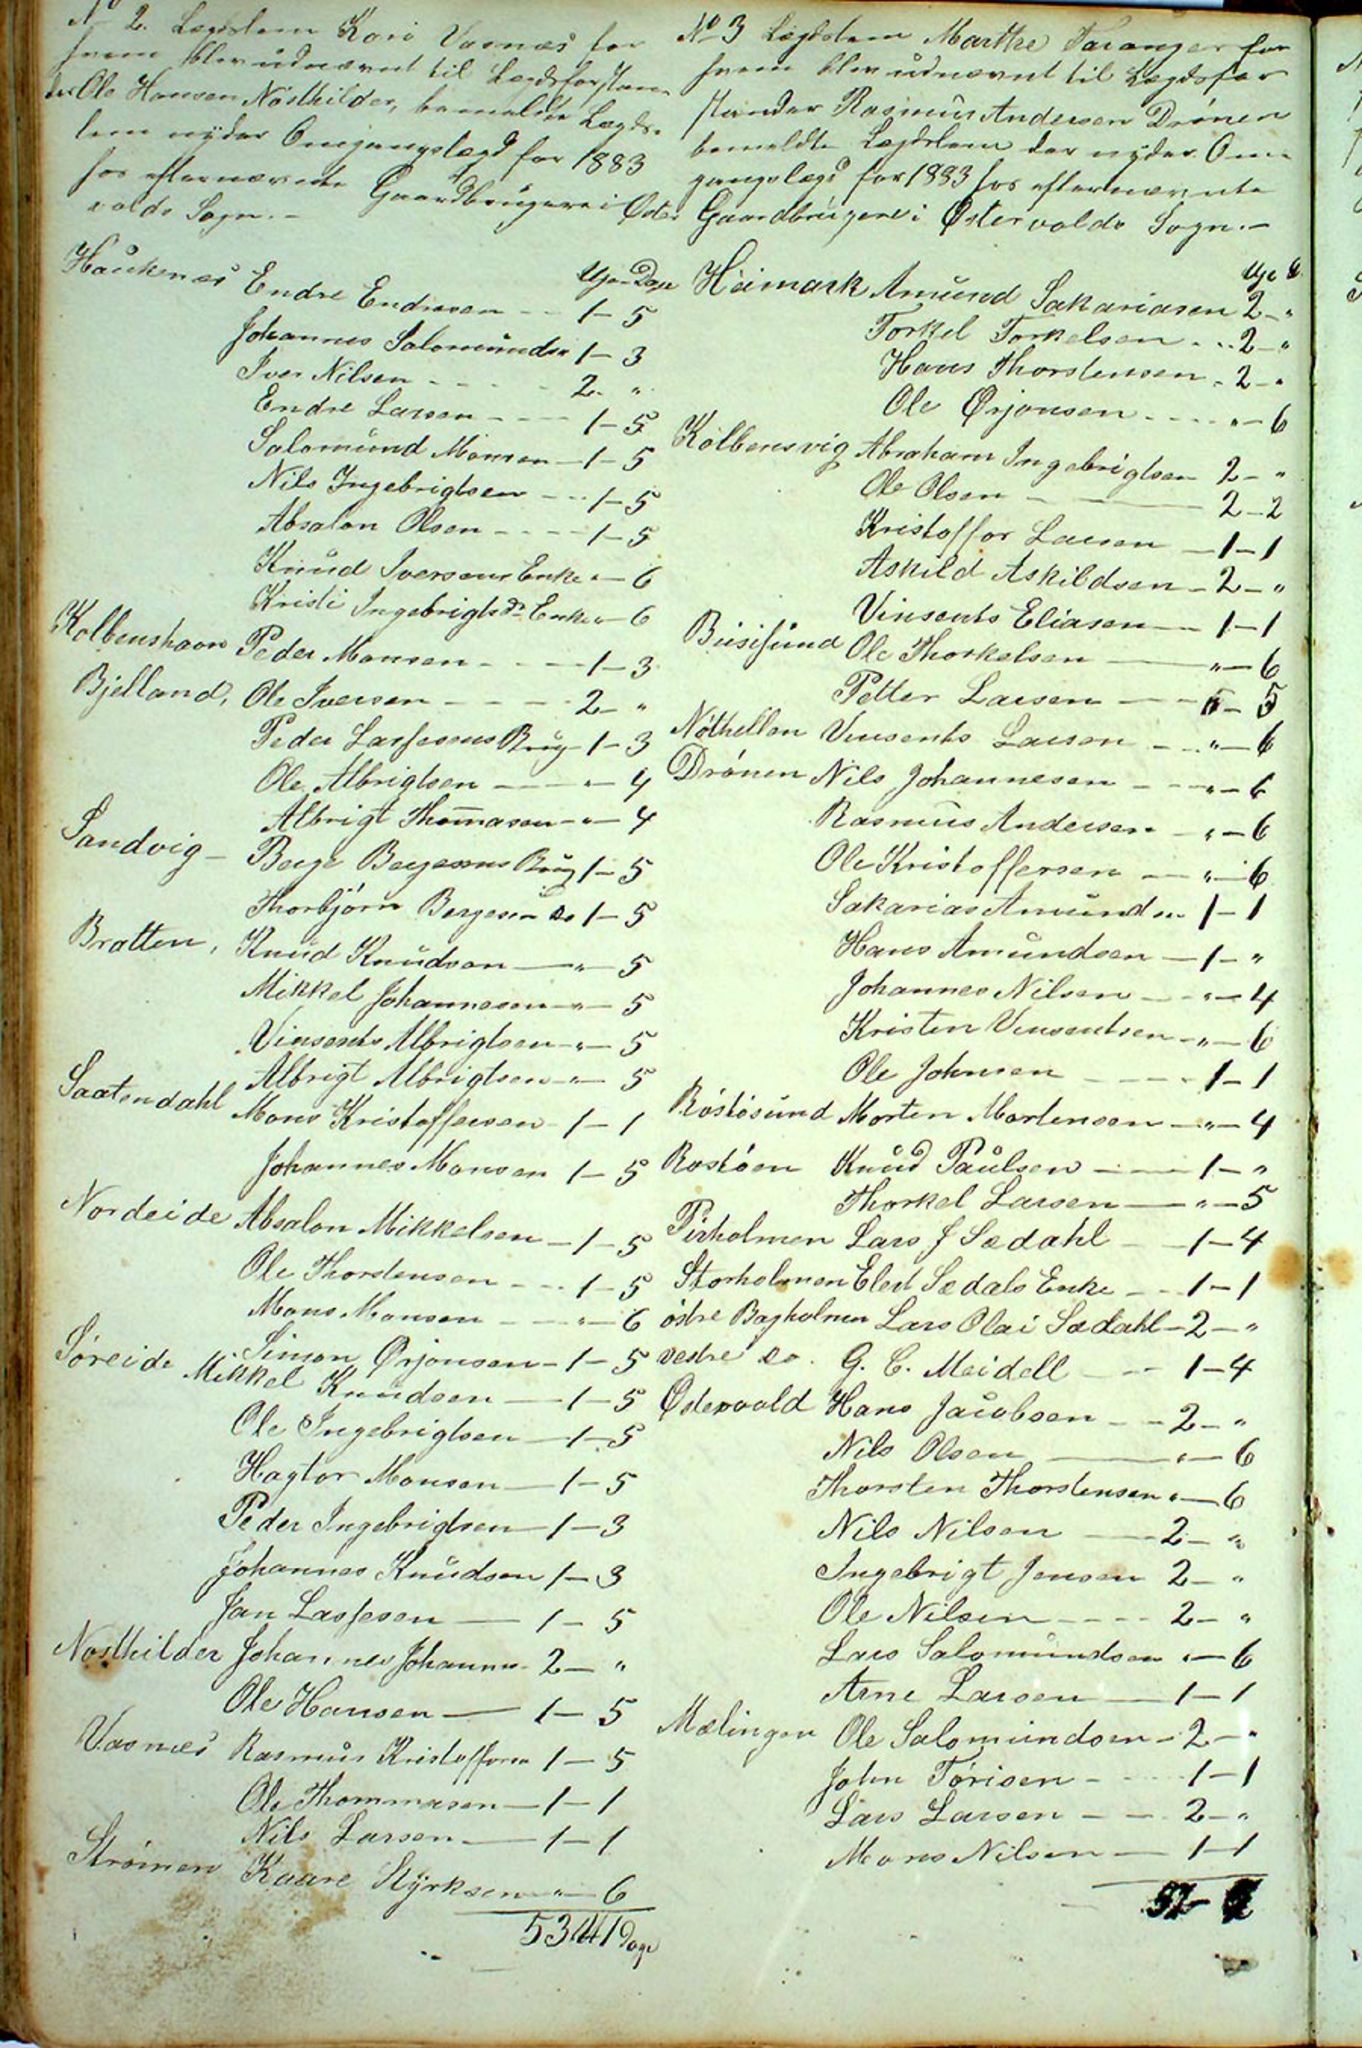 No 2. Lægdslem Kari Vasnæs for
hvem blev udnævnt til Lægdsforstan-
der Ole Hansen Nøsthilder, bemeldte Lægds-
lem nyder Omgangslægd for 1883
hos efternævnte Gaardbrugere i Øster
volds Sogn. -
Uger Dage
Haukenæs Endre Endresen - - 1 - 5
Johannes Salomundsn 1 - 3
Iver Nilsen - - - - 2 - "
Endre Larsen - - - 1 - 5
Salomund Monsen - 1 - 5
Nils Ingebrigtsen - - 1 - 5
Absalon Olsen - - - 1 - 5
Knud Iversens Enke " - 6
Kristi Ingebrigtsdr Enke " - 6
Kolbenshavn Peder Monsen - - - 1 - 3
Bjelland, Ole Iversen - - - - 2 - "
Peder Lassesens Brug 1 - 3
Ole Albrigtsen - - " - 4
Albrigt Thomasen - " - 4
Sandvig - Berge Bergesens Brug 1 - 5
Thorbjörn Bergesen do 1 - 5
Bratten, Knud Knudsen - " - 5
Mikkel Johannesen - " - 5
Vinsents Albrigtsen - " - 5
Albrigt Albrigtsen - " - 5
Saatendahl Mons Kristoffersen 1 - 1
Johannes Monsen 1 - 5
Nordeide Absalon Mikkelsen - 1 - 5
Ole Thorstensen - - 1 - 5
Mons Monsen - - - " - 6
Söreide Simon Ørjonsen - 1 - 5
Mikkel Knudsen - 1 - 5
Ole Ingebrigtsen - 1 - 5
Hagtor Monsen - 1 - 5
Peder Ingebrigtsen - 1 - 3
Johannes Knudsen 1 - 3
Jan Lassesen - 1 - 5
Nosthilder Johannes Johanns. 2 - "
Ole Hansen - 1 - 5
Vasnæs Rasmus Kristoffersn 1 - 5
Ole Thommasen - 1 - 1
Nils Larsen - 1 - 1
Strömen Kaare Styrksen - " - 6
53 Dage
No 3 Lægdslem Marthe Taranger for
hvem blev udnævnt til Lægdsfor
stander Rasmus Andersen Drönen
bemeldte Lægdslem der nyder Om-
gangslægd for 1883 hos efternævnte
Gaardbrugere i Østervolds Sogn. -
Uge D.
Heimark Amund Sakariasen 2 - "
Torkel Torkelsen - - 2 - "
Hans Thorstensen - 2 - "
Ole Ørjonsen - - - " - 6
Kolbensvig Abraham Ingebrigtsen 2 - "
Ole Olsen - - 2 - 2
Kristoffor Larsen - 1 - 1
Askild Askildsen - 2 - "
Vinsents Eliasen - 1 - 1
Busisund Ole Thorkelsen - " - 6
Petter Larsen - - 5
Nöthellen Vinsents Larsen - - " - 6
Drönen Nils Johannesen - - " - 6
Rasmus Andersen - " - 6
Ole Kristoffersen - " - 6
Sakarias Amundsn 1 - 1
Hans Amundsen - 1 - "
Johannes Nilsen - - " - 4
Kristen Vinsentsen - " - 6
Ole Johnsen - - - 1 - 1
Röstösund Morten Mortensen - " - 4
Rostöen Knud Paulsen - - 1 - "
Thorkel Larsen - " - 5
Pirholmen Lars J Sædahl - 1 - 4
Storholmen Elert Sædals Enke - - 1 - 1
östre Bagholmen Lars Olai Sædahl - 2 - "
vestre do. G. C. Meidell - - 1 - 4
Østervold Hans Jacobsen - - 2 - "
Nils Olsen - " - 6
Thorsten Thorstensen " - 6
Nils Nilsen - 2 - "
Ingebrigt Jensen 2 - "
Ole Nilsen - - - 2 - "
Lars Salomundsen " - 6
Arne Larsen - 1 - 1
Mælingen Ole Salomundsen - 2 - "
John Törisen - - 1 - 1
Lars Larsen - - 2 - "
Mons Nilsen - 1 - 1